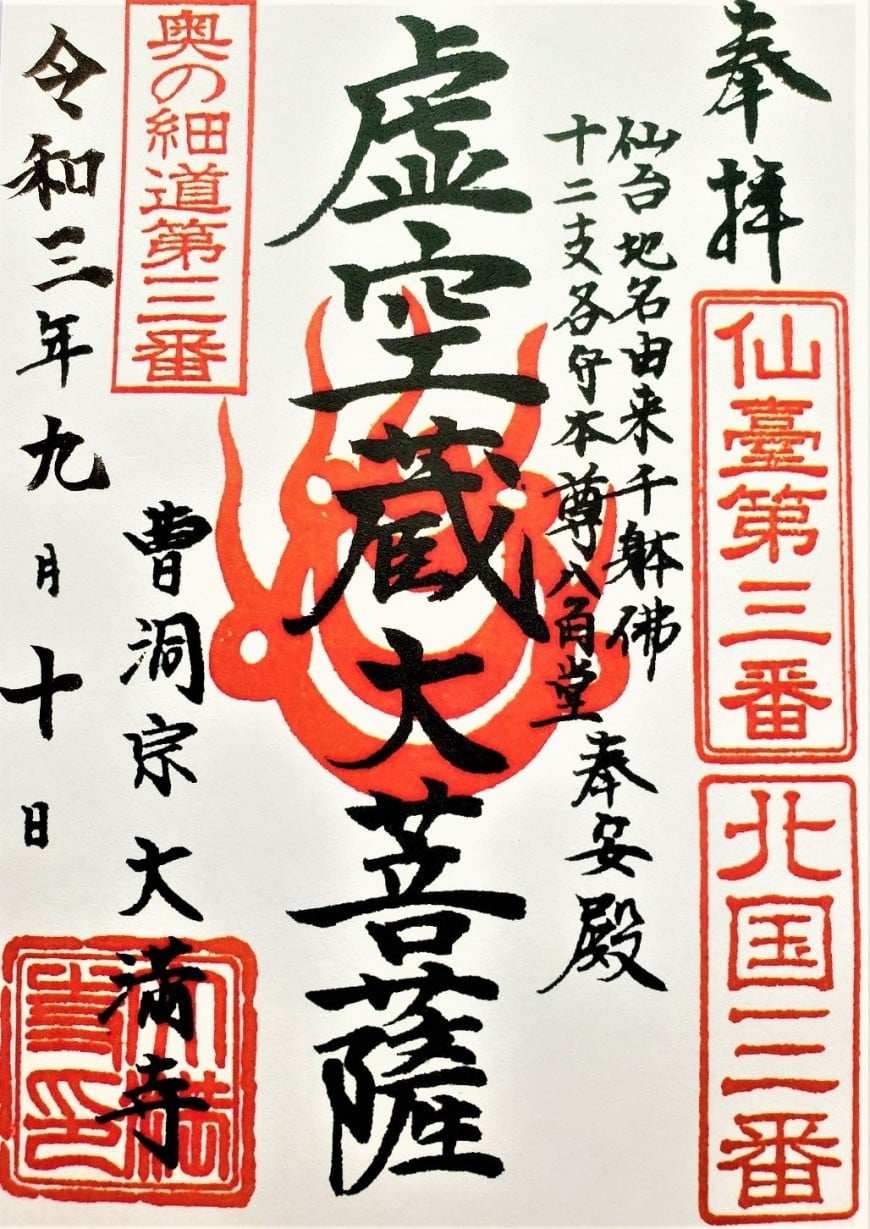 奉拝
仙臺第三番
北国三番
仙台地名由来千躰佛
十二支各守本尊八角堂
奉安殿
虚空蔵大菩薩
奥の細道第三番
曹洞宗大満寺
令和三年九月十日
大満寺印